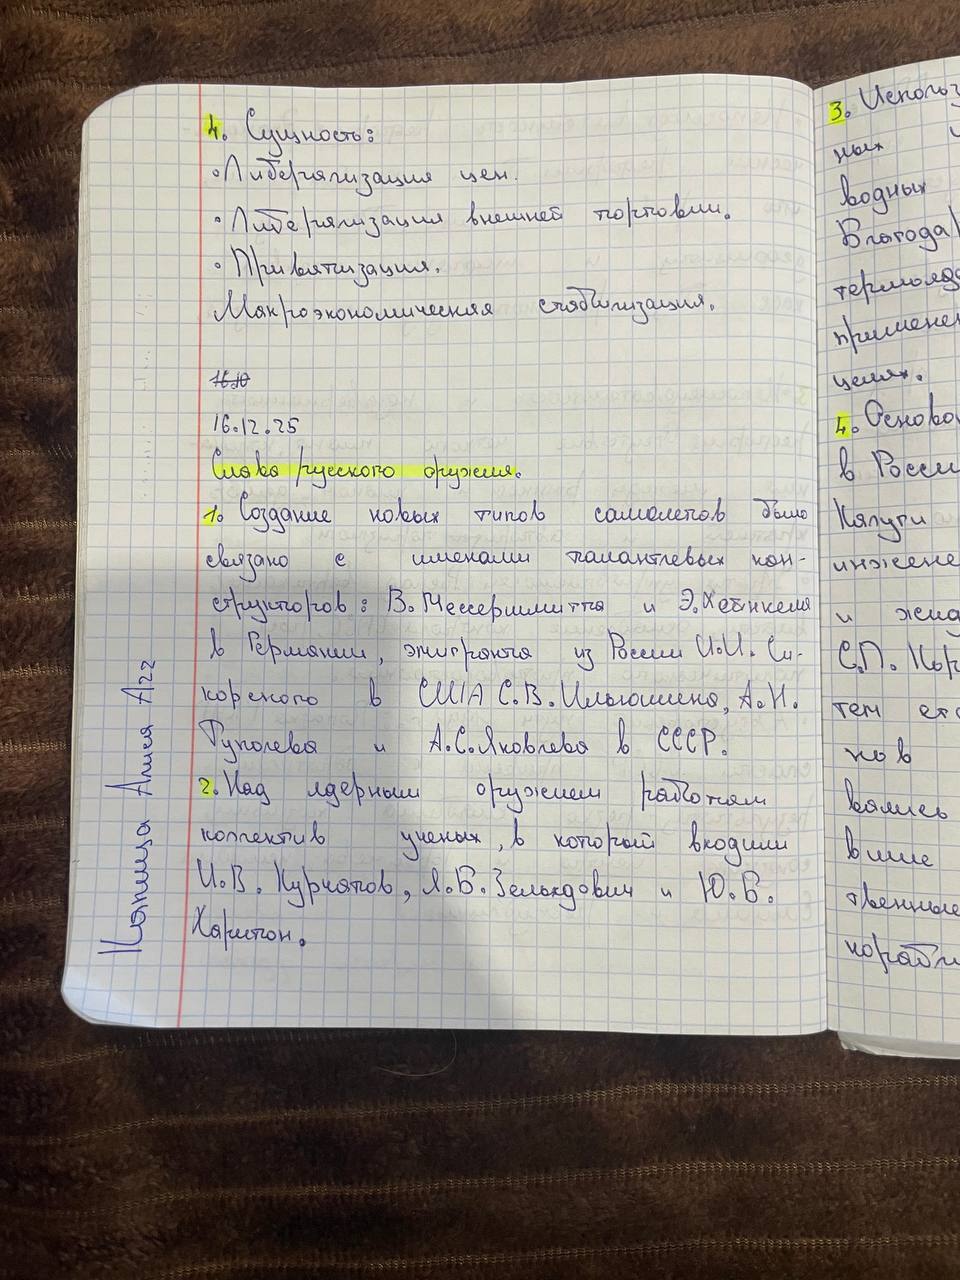 4. Сущность:
• Либерализация цен.
• Либерализация внешней торговли.
• Приватизация.
Макроэкономическая стабилизация.
16.12.25
Слава русского оружия.
1. Создание новых типов самолетов было
связано с именами талантлевых кон-
структоров: В. Мессершмитта и Э. Хейнкеля
в Германии, эмигранта из России И.И. Си-
корского в США С.В. Ильюшина, А.Н.
Туполева и А.С. Яковлева в СССР.
2. Над ядерным оружием работал
коллектив ученых, в который входили
И.В. Курчатов, Я.Б. Зельдович и Ю.Б.
Харитон.
Капница Алиса А22
3. Использ
ных
водных
Благодар
термояд
применен
целях.
4. Осново
в России
Калуги
инжене
и жид
С.П. Кор
тем ег
но в
вались
вшие
твенные
корабли